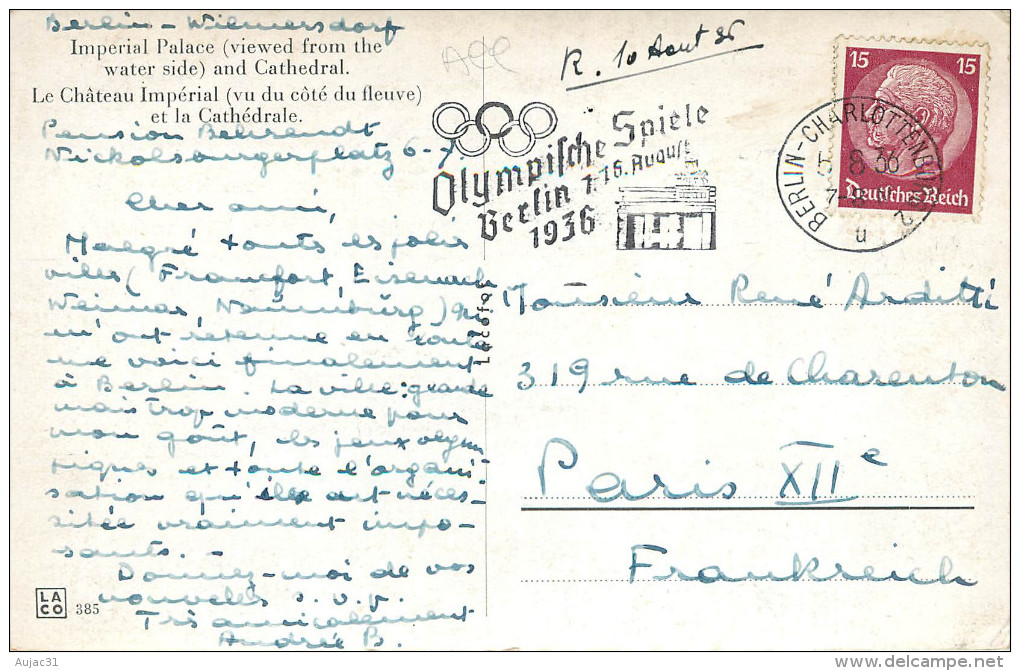 Berlin - Wilmersdorf
Imperial Palace (viewed from the
water side) and Cathedral.
Le Château Impérial (vu du côté du fleuve)
et la Cathédrale.
Pension Behrendt
Nickolsburgerplatz 6-7.
Cher ami,
Malgré toutes les jolies
villes (Francfort, Eisenach
Weimar, Naumburg) qui
m'ont retenue en route
me voici finalement
à Berlin. La ville: grande
mais trop moderne pour
mon goût, les jeux olym-
piques et toute l'organi-
sation qu'ils ont néces-
sitée vraiment impo-
sants. -
Donnez-moi de vos
nouvelles s.v.p.
Très amicalement
Andrée B.
LA
CO
385
All
R. 10 Aout 36
Olympische Spiele
Berlin 1.-16. August
1936
BERLIN-CHARLOTTENBURG 2
5.8.36
u
15 15
Deutsches Reich
Monsieur René Arditti
319 rue de Charenton
Paris XIIe
Frankreich
Aujac31
delcampe.net